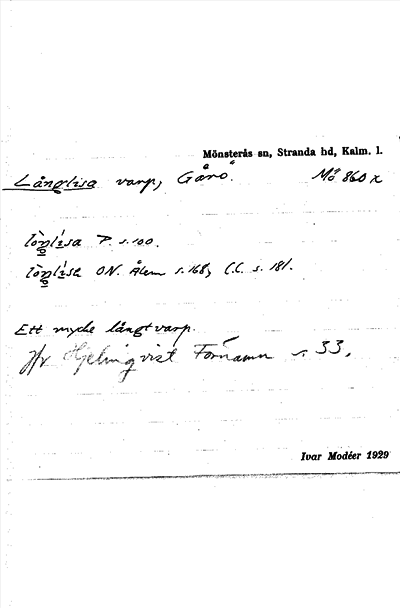 Mönsterås sn, Stranda hd, Kalm. l.
Långlisa varp, Gårö. Mö 860 x
P s. 100.
O.N. Ålem s. 168, C.C. s. 181.
Ett mycke långt varp.
Jfr Hjelmqvist Förnamn s. 33.
Ivar Modéer 1929